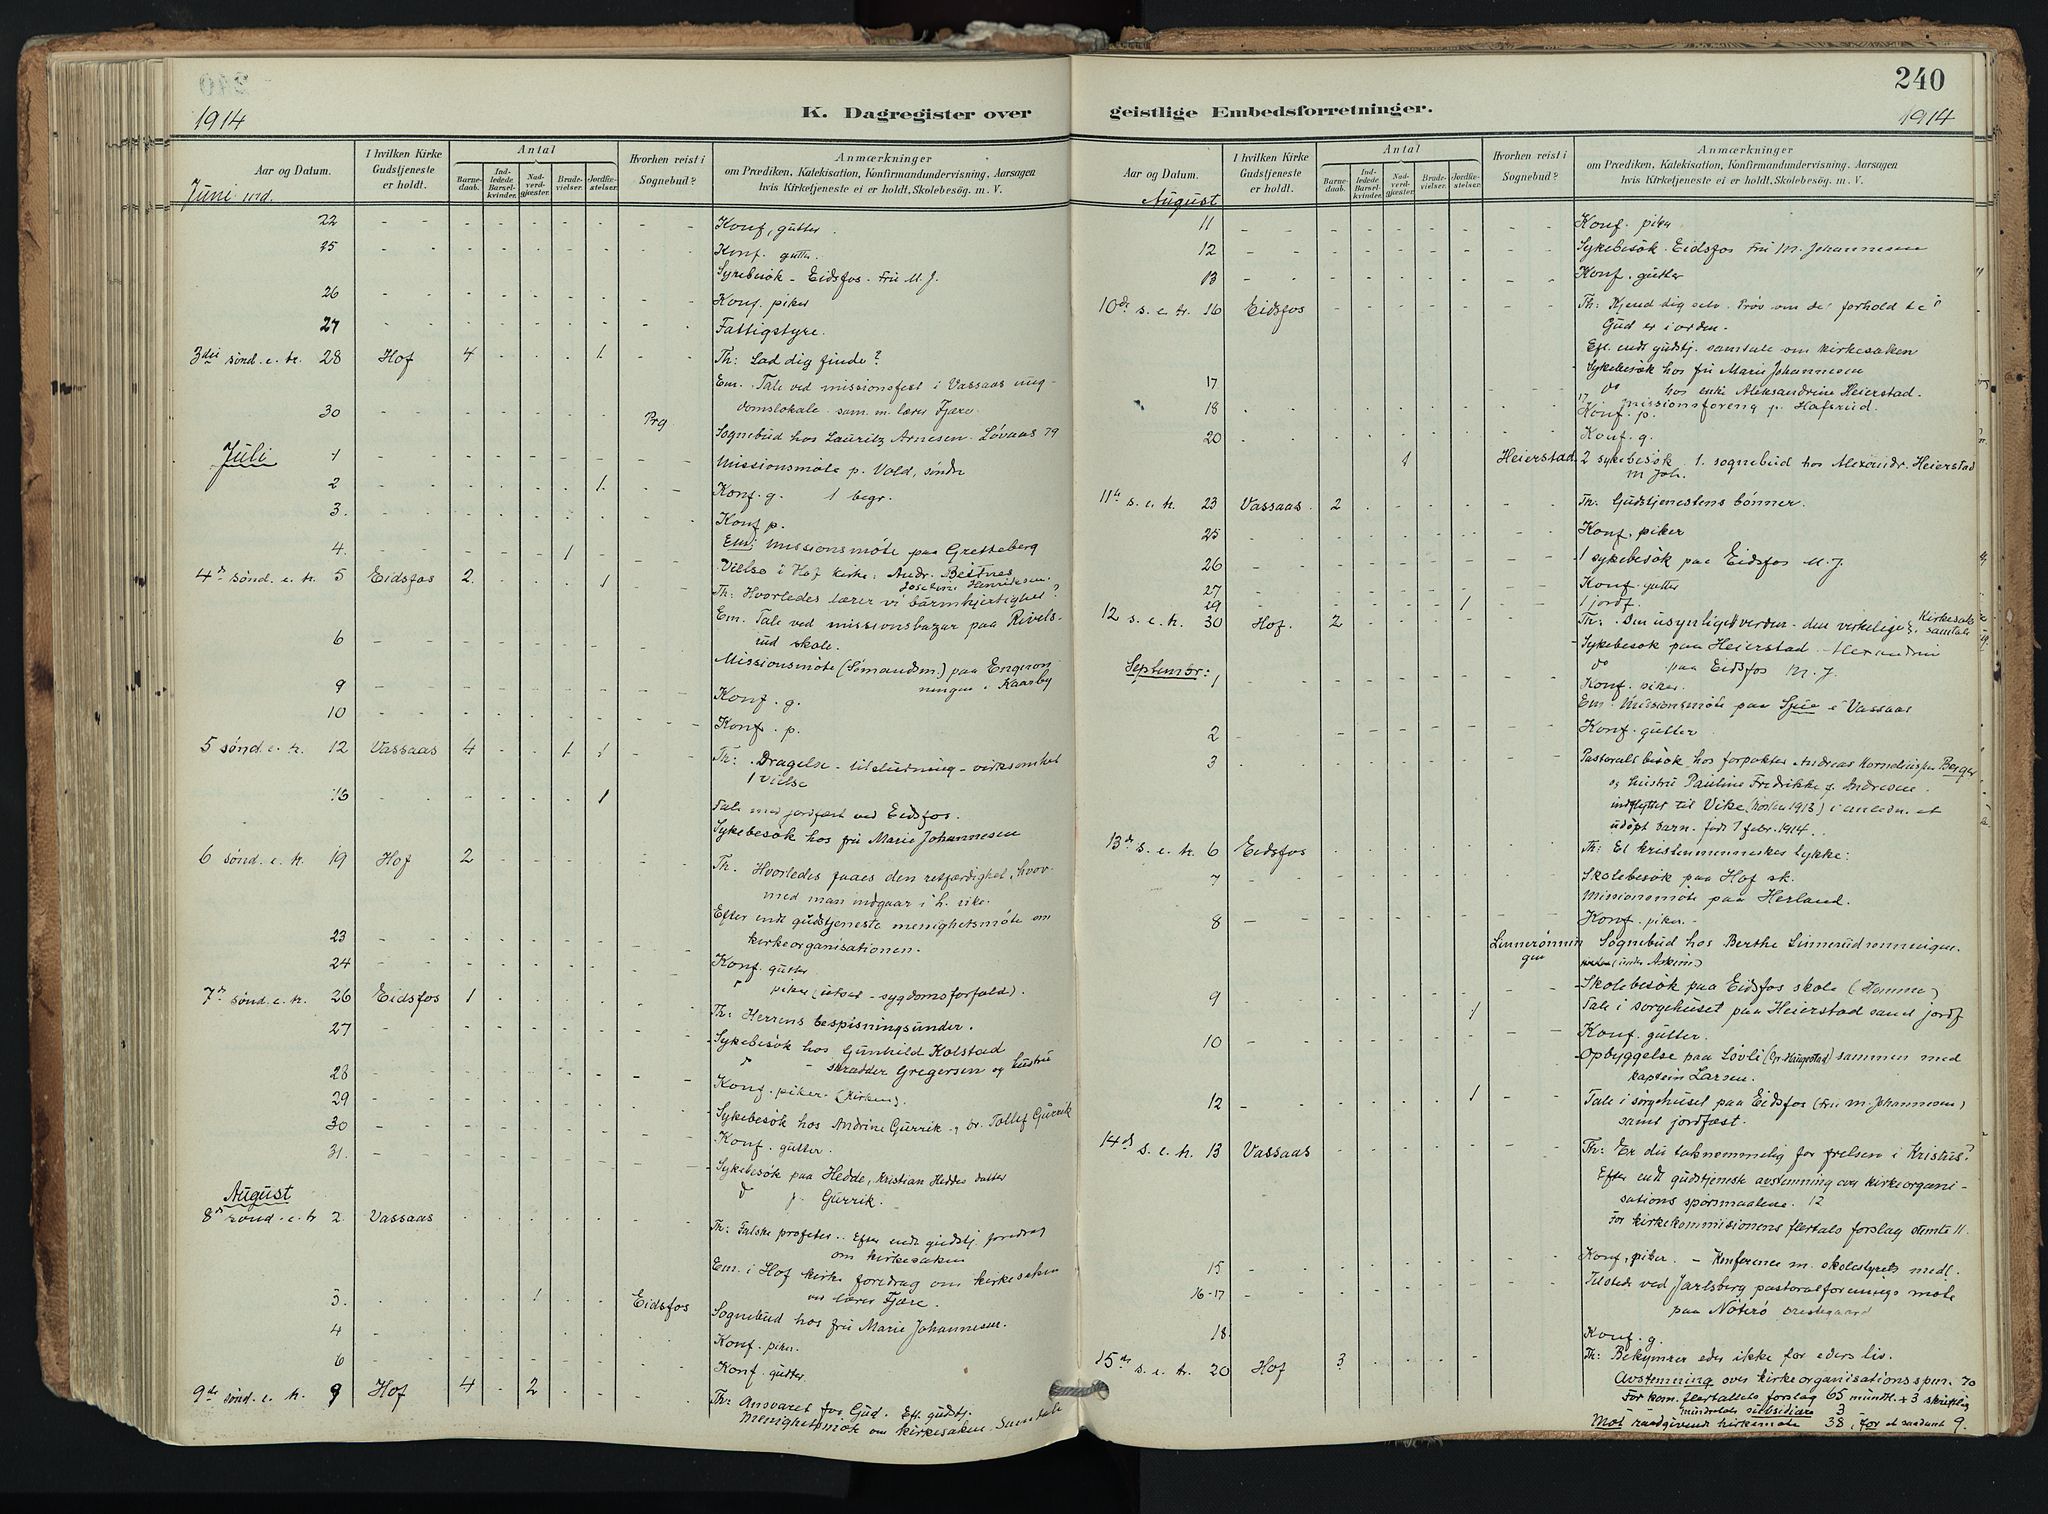 240
1914
K. Dagregister over
Aar og Datum.
I hvilken Kirke Gudstjeneste er holdt.
Antal
Barnedaab.
Indledede Barselkvinder.
Nadverdgjester.
Brudevielser.
Jordfæstelser.
Hvorhen reist i Sognebud?
Anmærkninger
om Prædiken, Katekisation, Konfirmandundervisning, Aarsagen
hvis Kirketjeneste ei er holdt, Skolebesøg. m. V.
Juni
22 Konf. gutter.
25 Konf. gutter.
Sykebesök - Eidsfos. Fru M. J.
26 Konf. piker
27 Fattigstyre.
3die sönd. e. tr. 28 Hof 4 1. Th: Lad dig finde?
Em. Tale ved missionsfest i Vassaas ung-
domslokale sam. m. lærer Fjære.
30 Prg. Sognebud hos Lauritz Arnesen. Lövaas 79
Juli 1 Missionsmöte p. Vold, söndre
2 1. Konf. g. 1 begr.
3. Konf p.
4. 1 Em: Missionsmöte paa Gretteberg
Vielse i Hof kirke: Andr. Bettnes
Josefine Henriksen.
4de sönd. e. tr. 5 Eidsfos 2. 1 Th: Hvorledes lærer vi barmhjertighet?
Em. Tale ved missionsbazar paa Rivels-
rud skole.
6 Missionsmöte (Sömandsm.) paa Engron
ningen i Kaarby
9 Konf. g.
10 Konf. p.
5 sönd. e. tr. 12 Vassaas 4 1. 1 Th: Dragelse - tilslutning - virksomhet
1 Vielse
13 1 Tale med jordfæst ved Eidsfos.
Sykebesök hos fru Marie Johannesen
6 sönd. e. tr. 19 Hof 2 Th. Hvorledes faaes den retfærdighet, hvor-
med man indgaar i h. rike.
Efter endt gudstjeneste menighetsmöte om
kirkeorganisationen.
23 Konf. gutter
24 " piker (utsat - sygdomsforfald).
7de sönd. e. tr. 26 Eidsfos 1 Th: Herrens bespisningsunder.
27 Sykebesök hos Gunhild Kolstad
" - skrædder Gregersen og hustru
28 Konf. piker (Kirken).
29 Sykebesök hos Andrine Gurrik, br. Tollef Gurrik
30 Konf. gutter.
31. Sykebesök paa Hedde, Kristian Heddes datter
do p. Gurrik.
August
8de sönd. e. tr 2. Vassaas Th: Falske profeter.. Efter endt gudstj. foredrag
om kirkesaken
Em. i Hof kirke foredrag om kirkesaken
ved lærer Fjære.
3. 1 Eidsfos Sognebud hos fru Marie Johannesen.
4 Konf. piker.
6 Konf. gutter
9de sönd. e. tr. 9 Hof 4 2 Th: Ansvaret for Gud. Eft. gudstj.
Menighetsmöte om kirkesaken. Samtale
240
1914
geistlige Embedsforretninger.
Aar og Datum.
I hvilken Kirke Gudstjeneste er holdt.
Antal
Barnedaab.
Indledede Barselkvinder.
Nadverdgjester.
Brudevielser.
Jordfæstelser.
Hvorhen reist i Sognebud?
Anmærkninger
om Prædiken, Katekisation, Konfirmandundervisning, Aarsagen
hvis Kirketjeneste ei er holdt, Skolebesøg. m. V.
August
11 Konf. piker
12 Sykebesök. Eidsfos Fru M. Johannesen
13 Konf. gutter
10de s. e. tr. 16 Eidsfos Th: Kjend dig selv. Pröv om dit forhold til
Gud er i orden.
Eft. endt gudstj. samtale om kirkesaken
17 Sykebesök hos fru Marie Johannesen
do hos enke Aleksandrine Heierstad.
17 missionsforeng p. Hafsrud.
18 Konf. p.
20 Konf. g.
1 Heierstad. 2 sykebesök 1. sognebud hos Alexandr. Heierstad
M Joh.
11te s. e. tr. 23 Vassaas. 2 Th: Gudstjenestens bönner.
25 Konf. piker
26 1 sykebesök paa Eidsfos M. J.
27 Konf. gutter
29 1 1 jordf.
12 s. e. tr. 30 Hof. 2 Th: Den usynlige verden - den virkelige. Kirkesak
samtale
Sykebesök paa Heierstad Alexandrine
do paa Eidsfos M. J.
September:
1 Konf. piker.
Em. Missionsmöte paa Sjue i Vassaas
2 Konf. gutter
3 Pastoralbesök hos forpakter Andreas Korneliussen Berger
og hustru Pauline Fredrikke f. Andresen.
indflyttet til Vike (hösten 1913) i anledn. et
udöpt barn. född 7 febr. 1914..
13de s. e. tr. 6 Eidsfos Th: Et kristenmenneskes lykke:
7 Skolebesök paa Hof sk.
Missionsmöte paa Herland.
8 Konf. piker.
Linnerönnin
gen Sognebud hos Berthe Linnerudrønningen
(under Askim)
9 Skolebesök paa Eidsfos skole (Hamme)
1 Tale i sorgehuset paa Heierstad samt jordf
10 Konf. gutter.
Opbyggelse paa Lövli (Gr. Haugestad) sammen med
kaptein Larsen.
12 1 Tale i sörgehuset paa Eidsfos (Fru M. Johannesen)
samt jordfæst.
14de s. e. tr. 13 Vassaas Th: Er du taknemmelig for frelsen i Kristus?
Efter endt gudstjeneste avstemning over kirkeorgani-
sations spörsmaalene. 12
For kirkekommissionens flertals forslag stemte 11.
15 Konf. piker. - Konference m. skolestyrets medl.
16-17 Tilstede ved Jarlsberg pastoralforenings möte
paa Nöterö prestegaard
18. Konf. g.
15de s. e. tr. 20 Hof 3 Th: Bekymrer eder ikke for eders liv.
Avstemning over kirkeorganisations spm. 70
For kom. flertallets forslag 65 mundtl. + 3 skriftlig
mindretals subsidiære 3
Mot raadgivende kirkemöte 38, for et saadant 9.